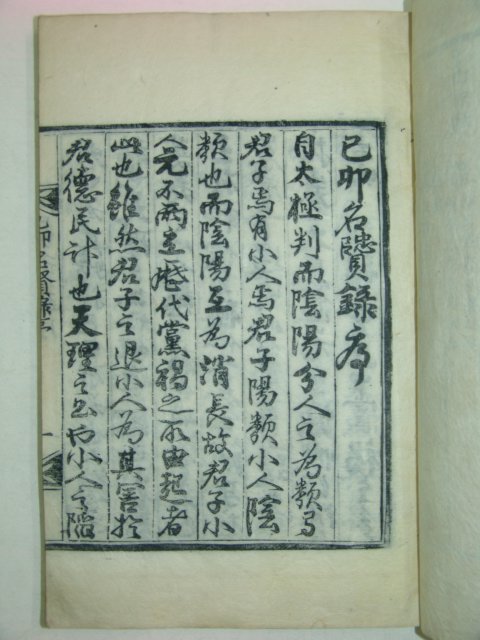 己卯名賢錄序
自太極判而陰陽分人之為類焉
君子焉有小人焉君子陽類小人陰
類也而陰陽互為消長故君子小
人元不兩立歷代黨禍之所由起者
此也雖然君子之退小人為其害於
君德民計也天理之出也小人之陷
己卯名賢錄序
一